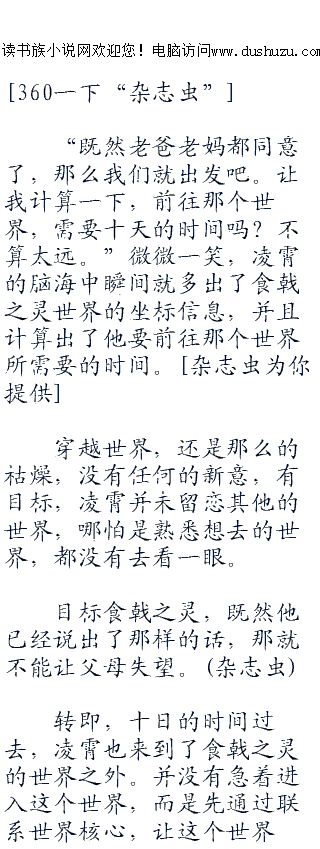 读书族小说网欢迎您！电脑访问www.dushuzu.com
[360一下“杂志虫”]
“既然老爸老妈都同意
了，那么我们就出发吧。让
我计算一下，前往那个世
界，需要十天的时间吗？不
算太远。”微微一笑，凌霄
的脑海中瞬间就多出了食戟
之灵世界的坐标信息，并且
计算出了他要前往那个世界
所需要的时间。[杂志虫为你
提供]
穿越世界，还是那么的
枯燥，没有任何的新意，有
目标，凌霄并未留恋其他的
世界，哪怕是熟悉想去的世
界，都没有去看一眼。
目标食戟之灵，既然他
已经说出了那样的话，那就
不能让父母失望。(杂志虫)
转即，十日的时间过
去，凌霄也来到了食戟之灵
的世界之外。并没有急着进
入这个世界，而是先通过联
系世界核心，让这个世界